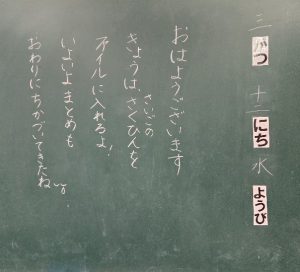 三がつ 十二にち 水ようび
おはようございます
きょうは、さいごのさくひんを
ファイルに入れるよ!
いよいよ まとめも
おわりにちかづいてきたね